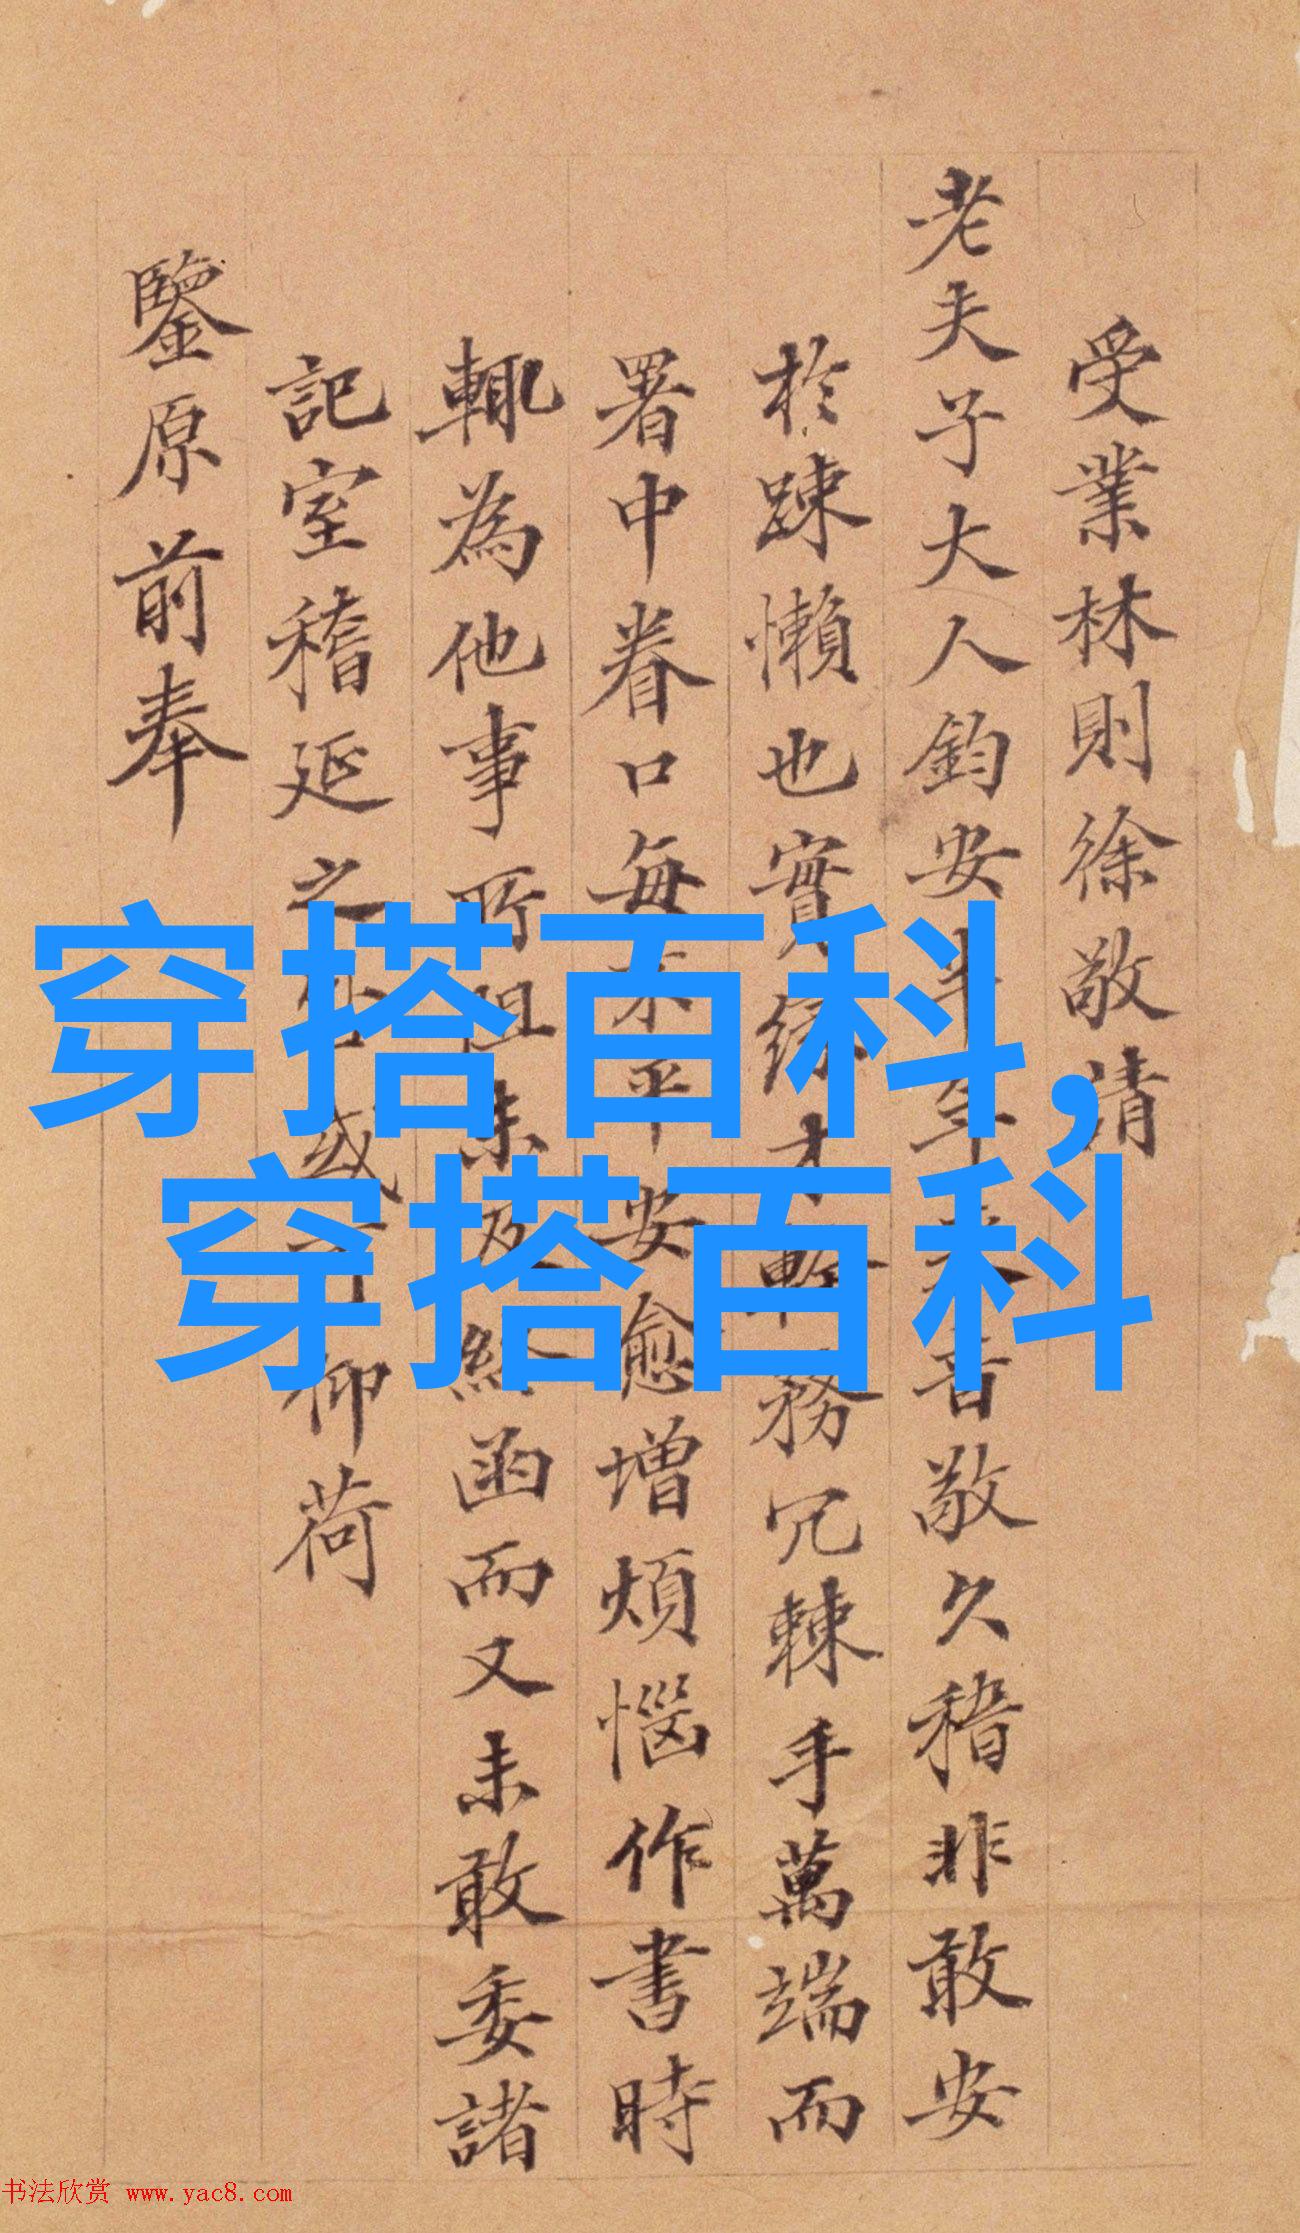 受業林則徐敬請
老夫子大人鈞安半年來音敬久稽非敢安
於踈懶也實緣才軫務冗棘手萬端而
署中眷口每不平安愈增煩惱作書時
輒為他事所阻未及終函而又未敢委諸
記室稽延之仰荷
鑒原前奉
穿搭百科,
穿搭百科
书法欣赏 www.yac8.com